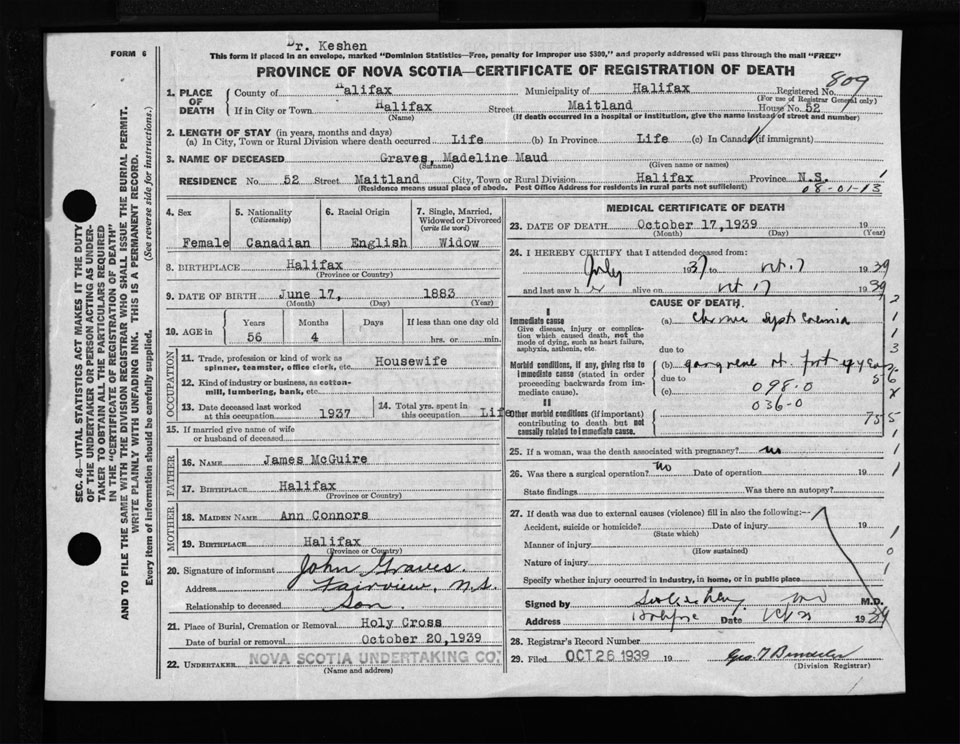 Dr. Keshen
FORM 6
This form if placed in an envelope, marked "Dominion Statistics—Free, penalty for improper use $300," and properly addressed will pass through the mail "FREE"
PROVINCE OF NOVA SCOTIA—CERTIFICATE OF REGISTRATION OF DEATH
809
1. PLACE OF DEATH
County of Halifax Municipality of Halifax Registered No.
(For use of Registrar General only)
If in City or Town Halifax Street Maitland House No. 52
(Name) (If death occurred in a hospital or institution, give the name instead of street and number)
2. LENGTH OF STAY (in years, months and days)
(a) In City, Town or Rural Division where death occurred Life (b) In Province Life (c) In Canada (if immigrant)
3. NAME OF DECEASED Graves, Madeline Maud
(Surname) (Given name or names)
RESIDENCE No. 52 Street Maitland City, Town or Rural Division Halifax Province N.S.
(Residence means usual place of abode. Post Office Address for residents in rural parts not sufficient) 08-01-13
4. Sex
Female
5. Nationality
(Citizenship)
Canadian
6. Racial Origin
English
7. Single, Married, Widowed or Divorced
(write the word)
Widow
8. BIRTHPLACE Halifax
(Province or Country)
9. DATE OF BIRTH June 17, 1883
(Month) (Day) (Year)
10. AGE in Years Months Days If less than one day old
56 4 hrs. or min.
OCCUPATION
11. Trade, profession or kind of work as spinner, teamster, office clerk, etc. Housewife
12. Kind of industry or business, as cotton-mill, lumbering, bank, etc.
13. Date deceased last worked at this occupation 1937
14. Total yrs. spent in this occupation Life
15. If married give name of wife or husband of deceased
FATHER
16. NAME James McGuire
17. BIRTHPLACE Halifax
(Province or Country)
MOTHER
18. MAIDEN NAME Ann Connors
19. BIRTHPLACE Halifax
(Province or Country)
20. Signature of informant John Graves.
Address Fairview, N.S.
Relationship to deceased Son.
21. Place of Burial, Cremation or Removal Holy Cross
Date of burial or removal October 20,1939
22. UNDERTAKER NOVA SCOTIA UNDERTAKING CO.
(Name and address)
MEDICAL CERTIFICATE OF DEATH
23. DATE OF DEATH October 17,1939 19
(Month) (Day) (Year)
24. I HEREBY CERTIFY that I attended deceased from:
July 1937 to Oct. 17 1939
and last saw h alive on Oct 17 1939
CAUSE OF DEATH.
I
Immediate cause
Give disease, injury or complication which caused death, not the mode of dying, such as heart failure, asphyxia, asthenia, etc.
(a) Chronic Septicaemia
due to
Morbid conditions, if any, giving rise to immediate cause (stated in order proceeding backwards from immediate cause).
(b) gangrene rt. foot
due to
(c) 098.0
036-0
II
Other morbid conditions (if important) contributing to death but not causally related to immediate cause.
755
25. If a woman, was the death associated with pregnancy? no
26. Was there a surgical operation? no Date of operation 19
State findings Was there an autopsy?
27. If death was due to external causes (violence) fill in also the following:—
Accident, suicide or homicide? Date of injury 19
(State which)
Manner of injury
(How sustained)
Nature of injury
Specify whether injury occurred in industry, in home, or in public place
Signed by M.D.
Address Halifax Date 1939
28. Registrar's Record Number
29. Filed OCT 26 1939 19
(Division Registrar)
SEC. 46—VITAL STATISTICS ACT MAKES IT THE DUTY OF THE UNDERTAKER OR PERSON ACTING AS UNDERTAKER TO OBTAIN ALL THE PARTICULARS REQUIRED IN THE "CERTIFICATE OF REGISTRATION OF DEATH" AND TO FILE THE SAME WITH THE DIVISION REGISTRAR WHO SHALL ISSUE THE BURIAL PERMIT.
WRITE PLAINLY WITH UNFADING INK. THIS IS A PERMANENT RECORD.
Every item of information should be carefully supplied. (See reverse side for instructions.)